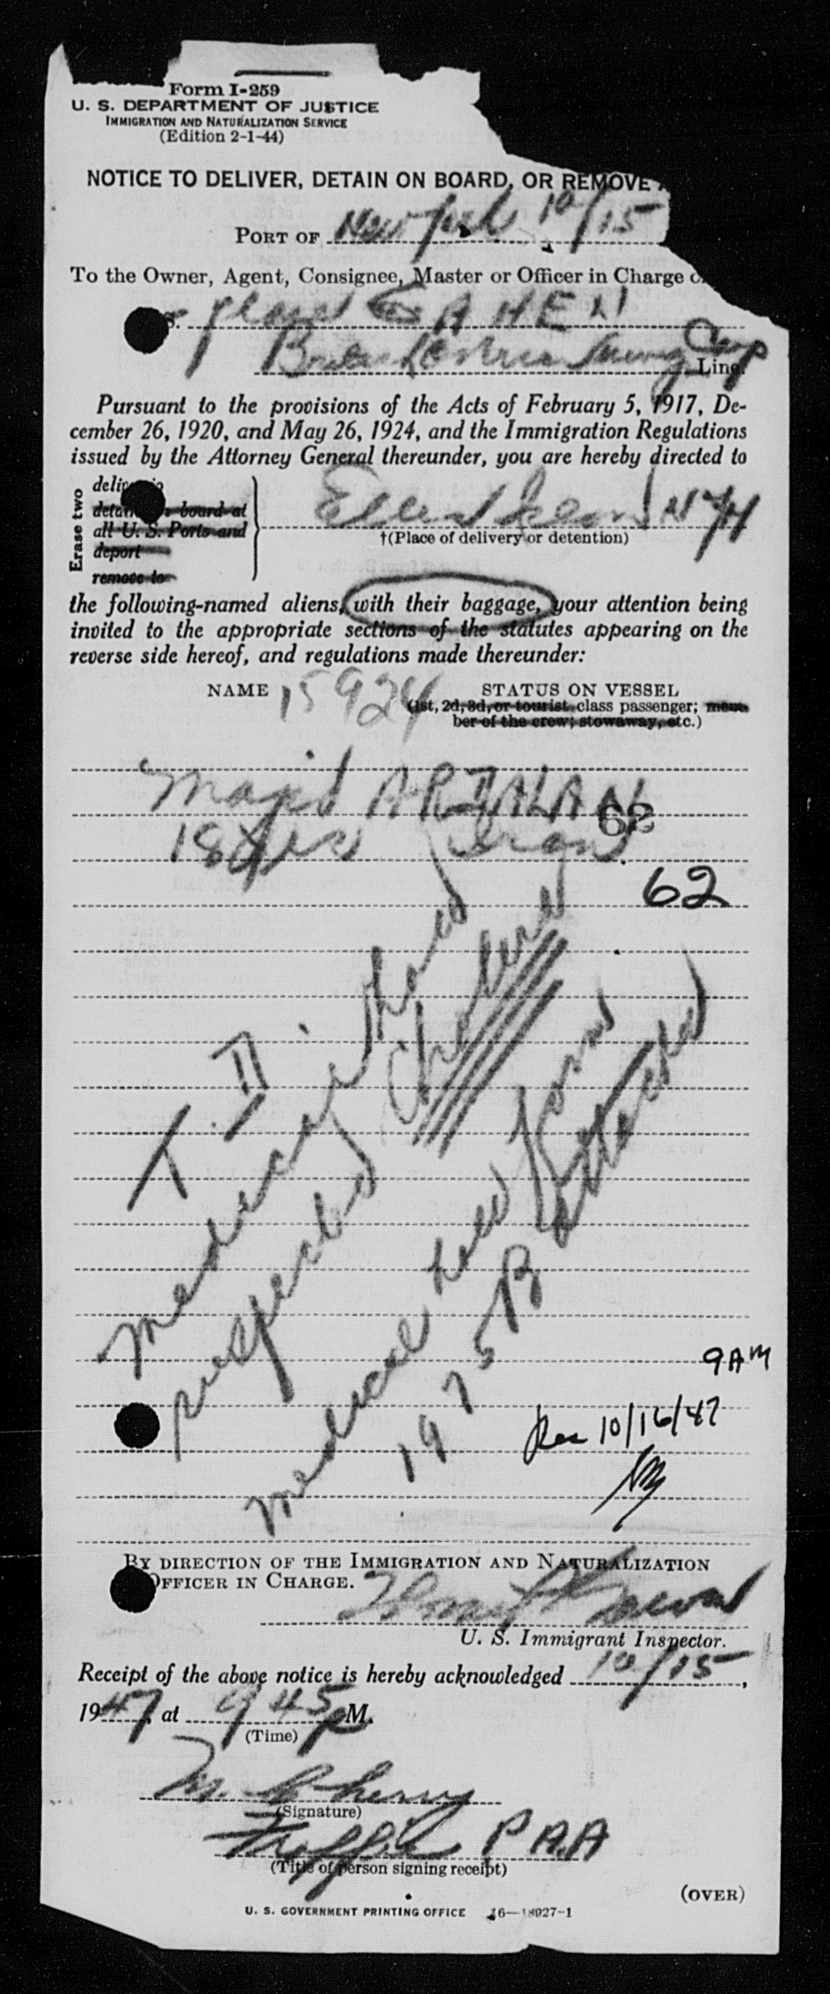 Form I-259
U. S. DEPARTMENT OF JUSTICE
IMMIGRATION AND NATURALIZATION SERVICE
(Edition 2-1-44)
NOTICE TO DELIVER, DETAIN ON BOARD, OR REMOVE
PORT OF New York 10/15
To the Owner, Agent, Consignee, Master or Officer in Charge
S. GAHEN
Line.
Pursuant to the provisions of the Acts of February 5, 1917, De-
cember 26, 1920, and May 26, 1924, and the Immigration Regulations
issued by the Attorney General thereunder, you are hereby directed to
Erase two
board at
all U. S. Ports and
deport
remove to
Ellis Island NYH
†(Place of delivery or detention)
the following-named aliens, with their baggage, your attention being
invited to the appropriate sections of the statutes appearing on the
reverse side hereof, and regulations made thereunder:
NAME 15924 STATUS ON VESSEL
(1st, 2d, 3d, or tourist class passenger; mem-
ber of the crew; stowaway, etc.)
Majid ARJALAN 62
18 yrs Iran
62
T. II
medical hold
suspected Cholera
medical hold form
1975 B attached
9 AM
Rec 10/16/47
BY DIRECTION OF THE IMMIGRATION AND NATURALIZATION
OFFICER IN CHARGE.
U. S. Immigrant Inspector.
Receipt of the above notice is hereby acknowledged 10/15,
1947, at 9 45 pM.
(Time)
M. Cherry
(Signature)
Traffic PAA
(Title of person signing receipt)
(OVER)
U. S. GOVERNMENT PRINTING OFFICE 16—18927-1